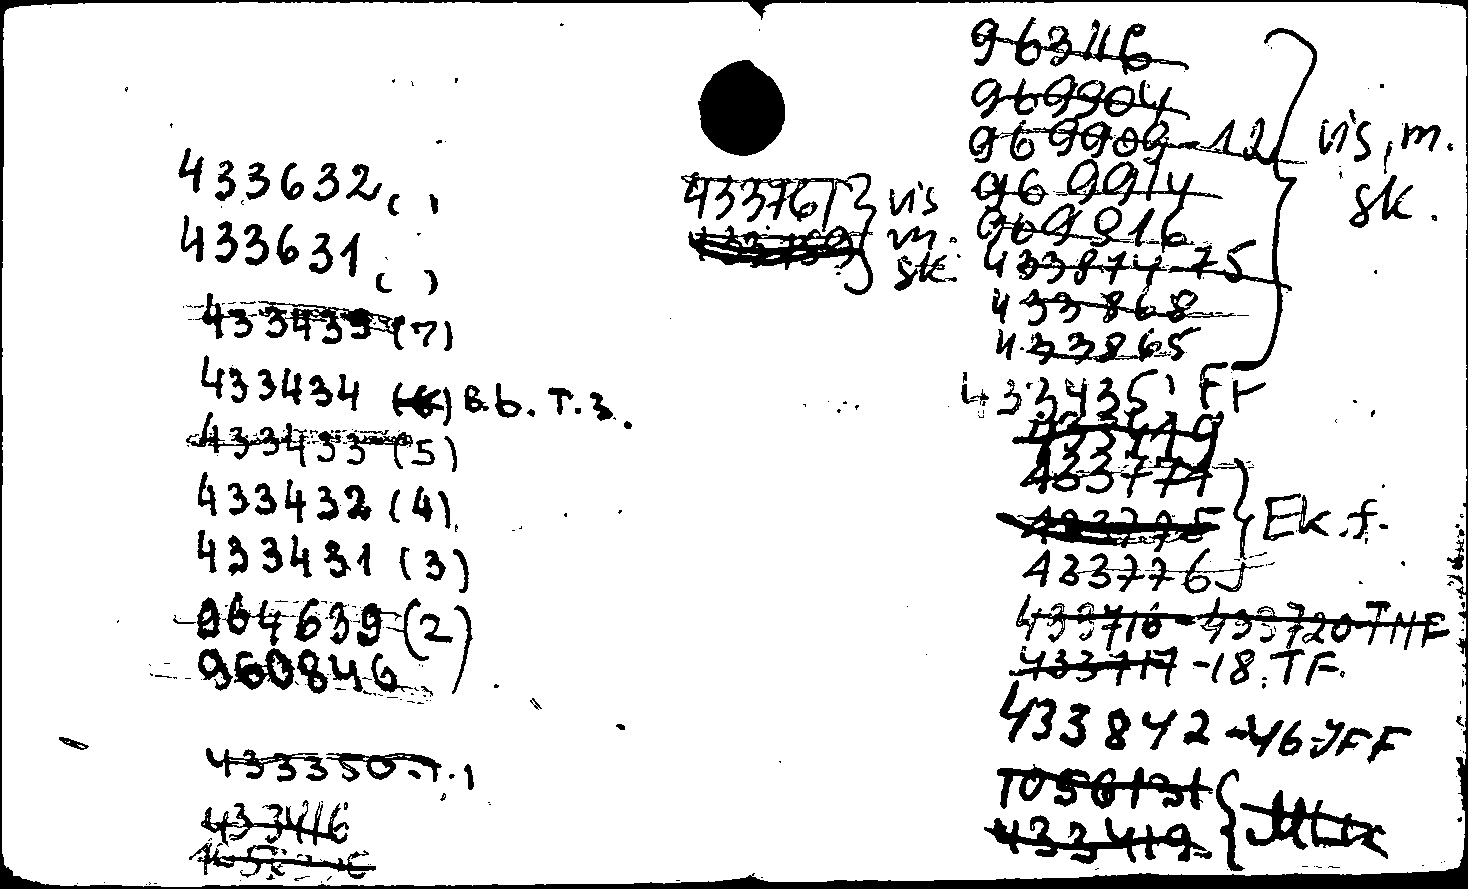 433632 ( )
433631 ( )
433439 (7)
433434 (6) B.b. T.3.
433433 (5)
433432 (4)
433431 (3)
964639 (2)
960846
433350.T.1
433416
433761 } vis
433759 m.
sk.
963116
969904
969909-12 } vis, m.
969914 sk.
969916
433874-75
433868
433865
433435' FF
433419
433777
433775 } Ek.f.
433776
433716-433720 THF
433717-18.TF.
433842-46-JFF
1056131
433419